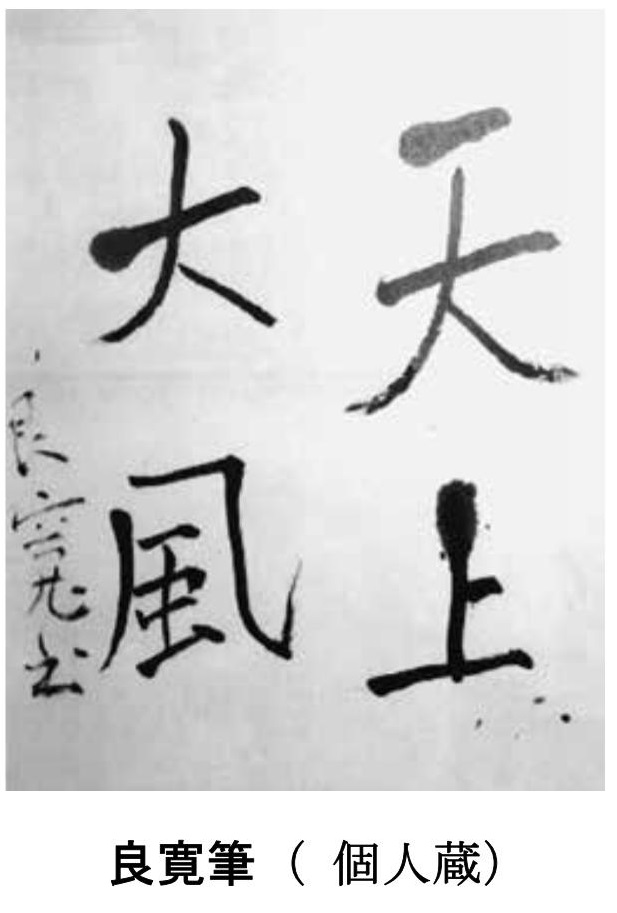 天上
大風
良寛書
良寛筆（ 個人蔵）